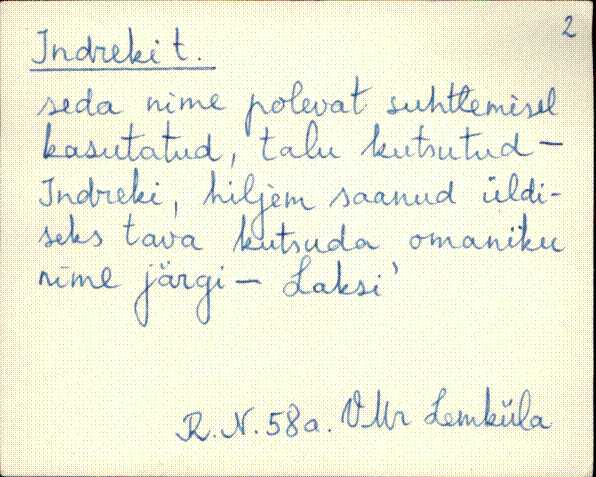 2
Indreki t.
seda nime polevat suhtlemisel
kasutatud, talu kutsutud –
Indreki, hiljem saanud üldi-
seks tava kutsuda omaniku
nime järgi – Laksi'
R.N. 58a. VMr Lemküla